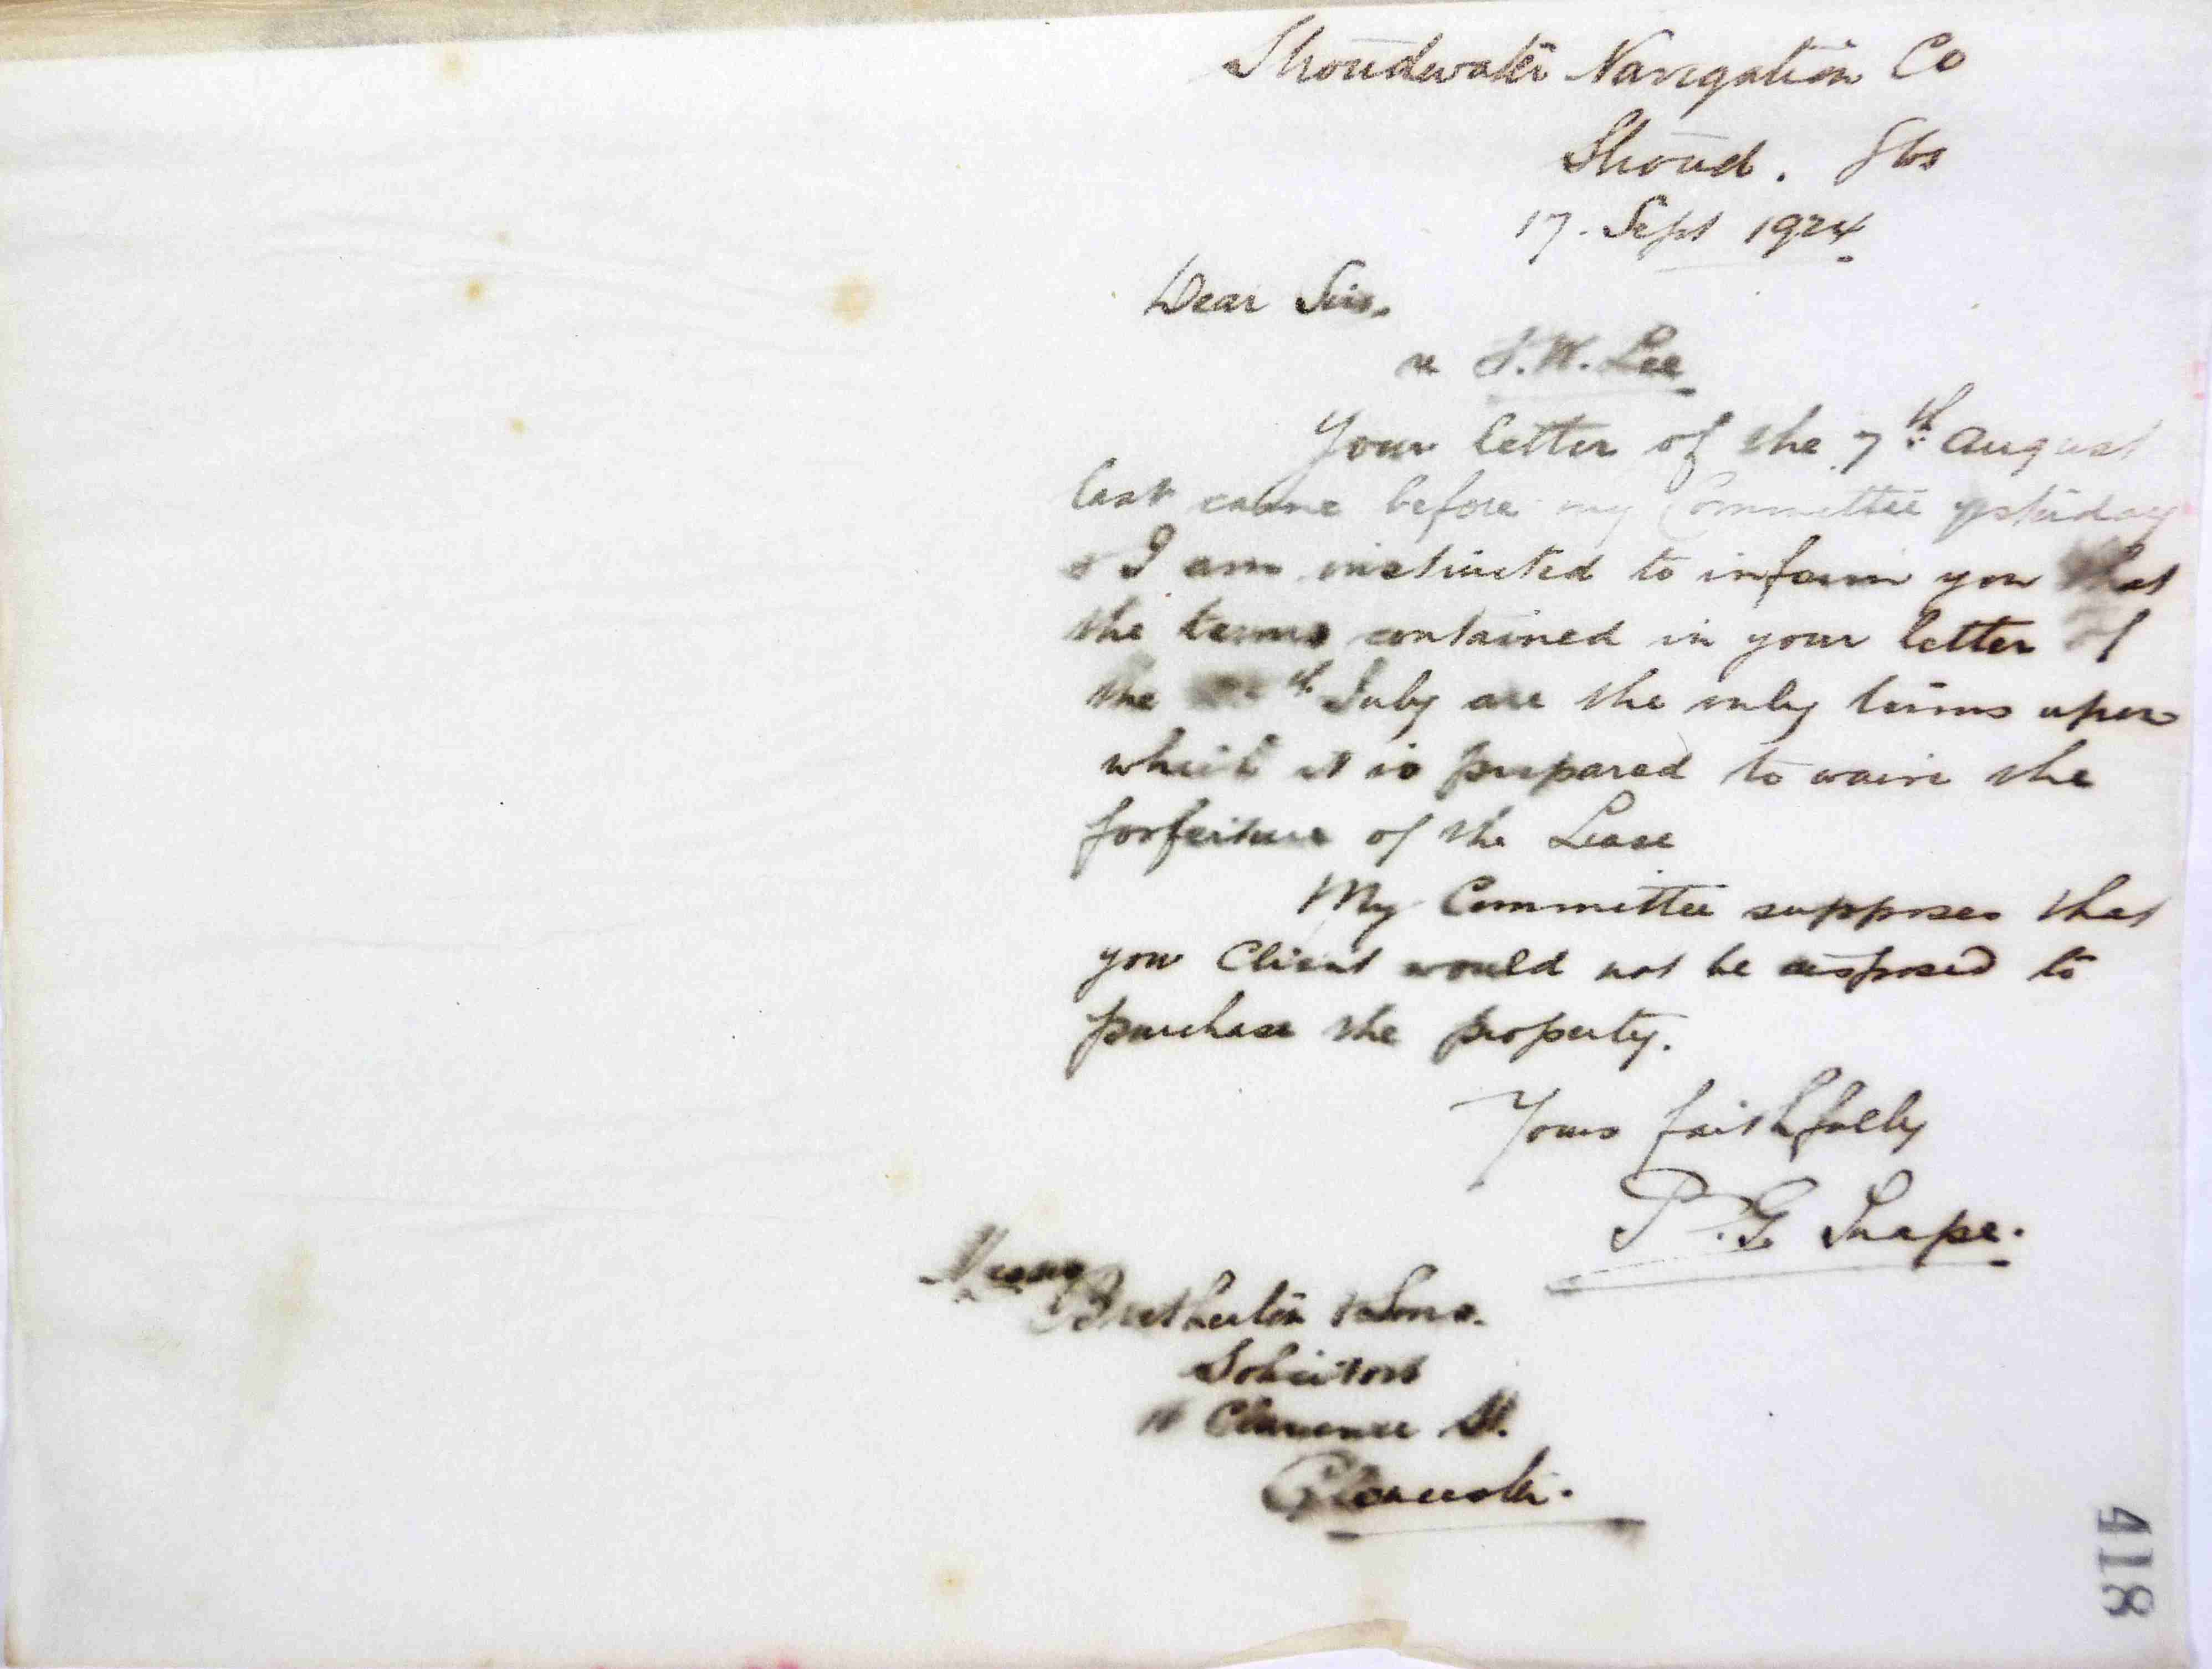 Stroudwater Navigation Co
Stroud. Glos
17. Sept 1924
Dear Sirs,
re J. W. Lee
Your letter of the 7th August
last came before my Committee yesterday
& I am instructed to inform you that
the terms contained in your letter of
the th July are the only terms upon
which it is prepared to waive the
forfeiture of the Lease
My Committee supposes that
you Client would not be disposed to
purchase the property.
Yours faithfully
P. G Snape.
Messrs
Bretherton & Sons.
Solicitors
Clarence St.
Gloucester.
418